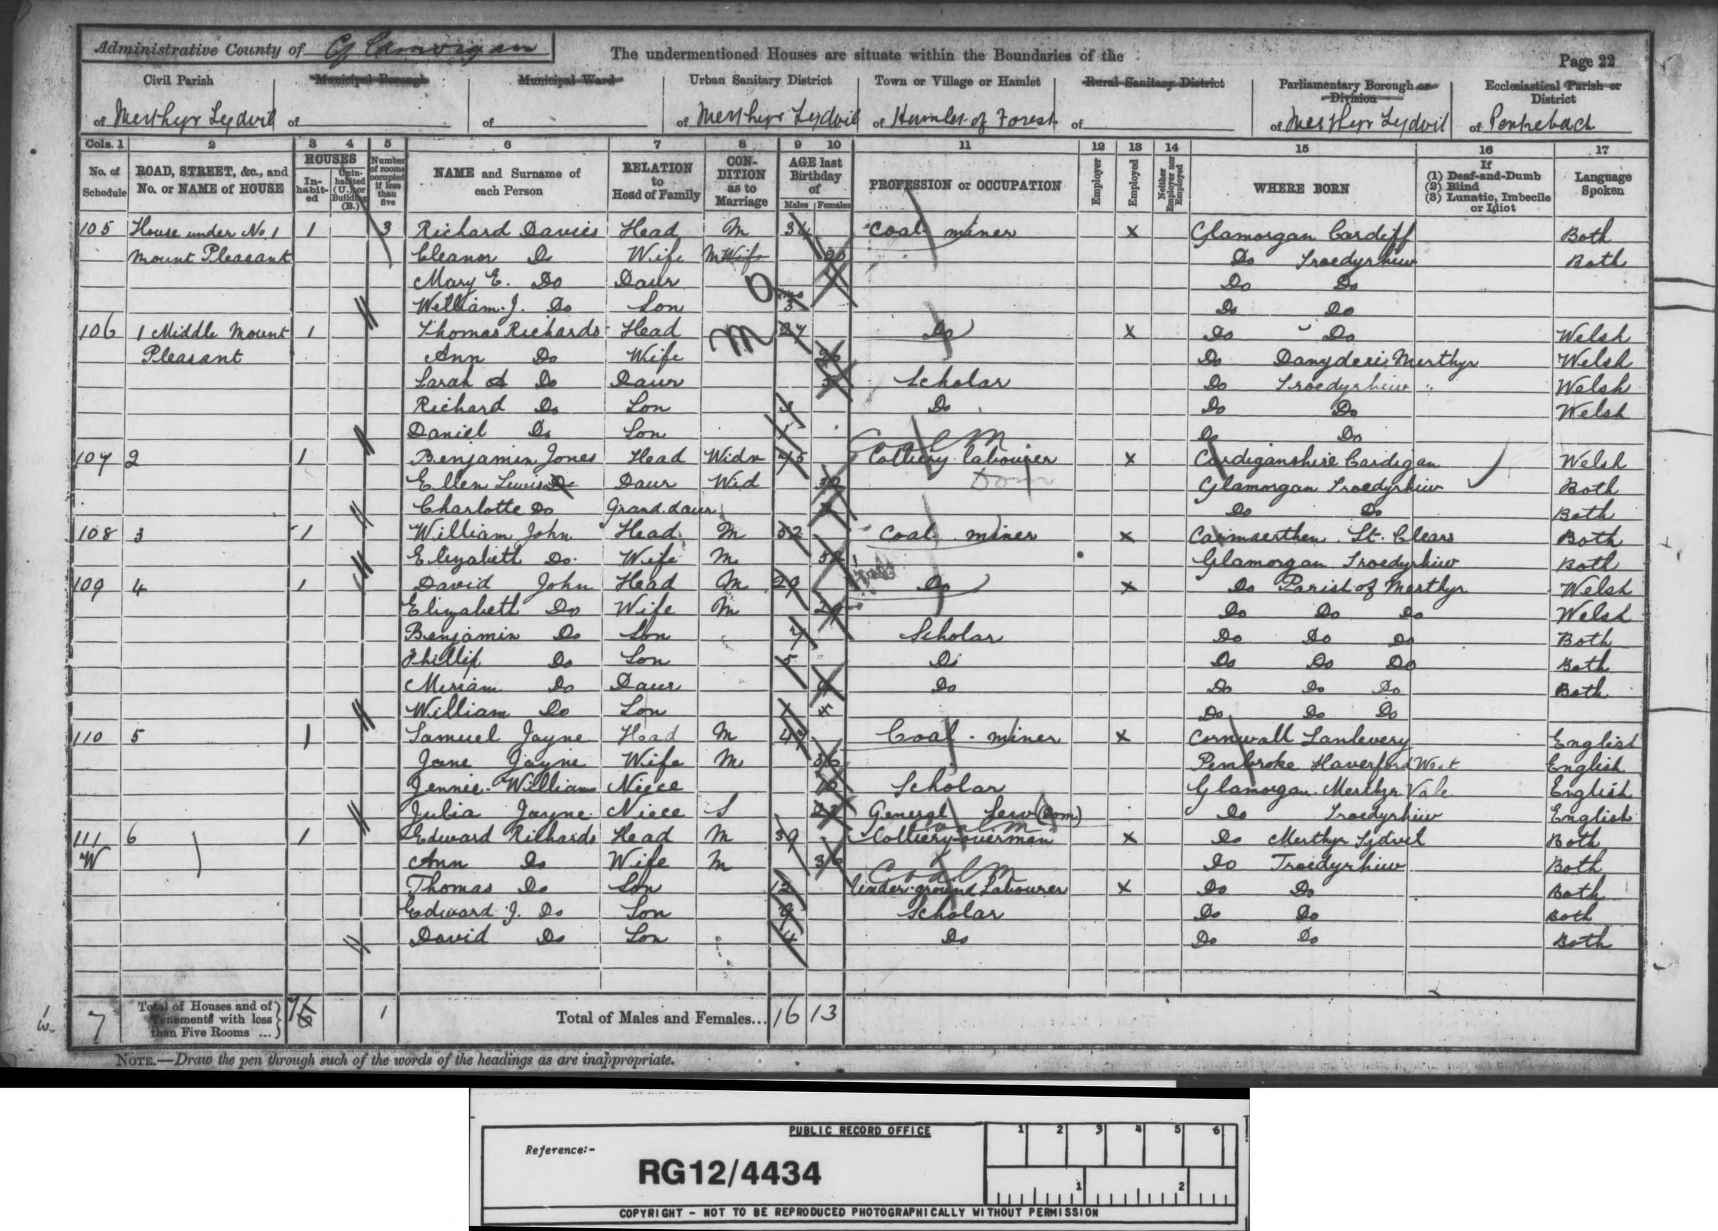 Administrative County of Glamorgan
The undermentioned Houses are situate within the Boundaries of the
Page 22
Civil Parish Municipal Borough Municipal Ward Urban Sanitary District Town or Village or Hamlet Rural Sanitary District Parliamentary Borough or Division Ecclesiastical Parish or District
of Merthyr Tydvil of of of Merthyr Tydvil of Hamlet of Forest of of Merthyr Tydvil of Pentrebach
Cols. 1 2 3 4 5 6 7 8 9 10 11 12 13 14 15 16 17
No. of Schedule ROAD, STREET, &c., and No. or NAME of HOUSE HOUSES Inhabited Uninhabited (U.) or Building (B.) Number of rooms occupied if less than five NAME and Surname of each Person RELATION to Head of Family CONDITION as to Marriage AGE last Birthday of Males Females PROFESSION or OCCUPATION Employer Employed Neither Employer nor Employed WHERE BORN If (1) Deaf-and-Dumb (2) Blind (3) Lunatic, Imbecile or Idiot Language Spoken
105 House under No 1 1 3 Richard Davies Head M Coal miner x Glamorgan Cardiff Both
Mount Pleasant Eleanor Do Wife M Do Troedyrhiw Both
Mary E. Do Daur Do Do
William J. Do Son 3 Do Do
106 1 Middle Mount 1 Thomas Richards Head M 27 Do x Do Do Welsh
Pleasant Ann Do Wife 26 Do Danyderi Merthyr Welsh
Sarah A Do Daur Scholar Do Troedyrhiw " Welsh
Richard Do Son Do Do Do Welsh
Daniel Do Son Do Do
Coal M
107 2 1 Benjamin Jones Head Widr 75 Colliery labourer x Cardiganshire Cardigan Welsh
Ellen Lewis Do Daur Wid Dom Glamorgan Troedyrhiw Both
Charlotte Do Grand daur Do Do Both
108 3 1 William John Head M 52 Coal miner x Carmaerthen St. Clears Both
Elizabeth Do Wife M Glamorgan Troedyrhiw Both
109 4 1 David John Head M 29 Do x Do Parish of Merthyr Welsh
Elizabeth Do Wife M 29 Do Do Do Welsh
Benjamin Do Son 7 Scholar Do Do Do Both
Phillip Do Son 5 Do Do Do Do Both
Miriam Do Daur Do Do Do Do Both
William Do Son Do Do Do
110 5 1 Samuel Jayne Head M Coal miner x Cornwall Lanlevery English
Jane Jayne Wife M 56 Pembroke Haverford West English
Jennie William Niece 10 Scholar Glamorgan Merthyr Vale English
Julia Jayne Niece S General Serv (Dom) Do Troedyrhiw English
Coal M
111 6 1 Edward Richards Head M 39 Colliery overman x Do Merthyr Tydvil Both
W Ann Do Wife M 36 Do Troedyrhiw Both
Coal M
Thomas Do Son 12 Under ground Labourer x Do Do Both
Edward J. Do Son 9 Scholar Do Do Both
David Do Son 4 Do Do Do Both
7 Total of Houses and of Tenements with less than Five Rooms ... 1 Total of Males and Females... 16 13
NOTE.—Draw the pen through such of the words of the headings as are inappropriate.
PUBLIC RECORD OFFICE
1 2 3 4 5 6
Reference:-
RG12/4434
1 2
COPYRIGHT - NOT TO BE REPRODUCED PHOTOGRAPHICALLY WITHOUT PERMISSION